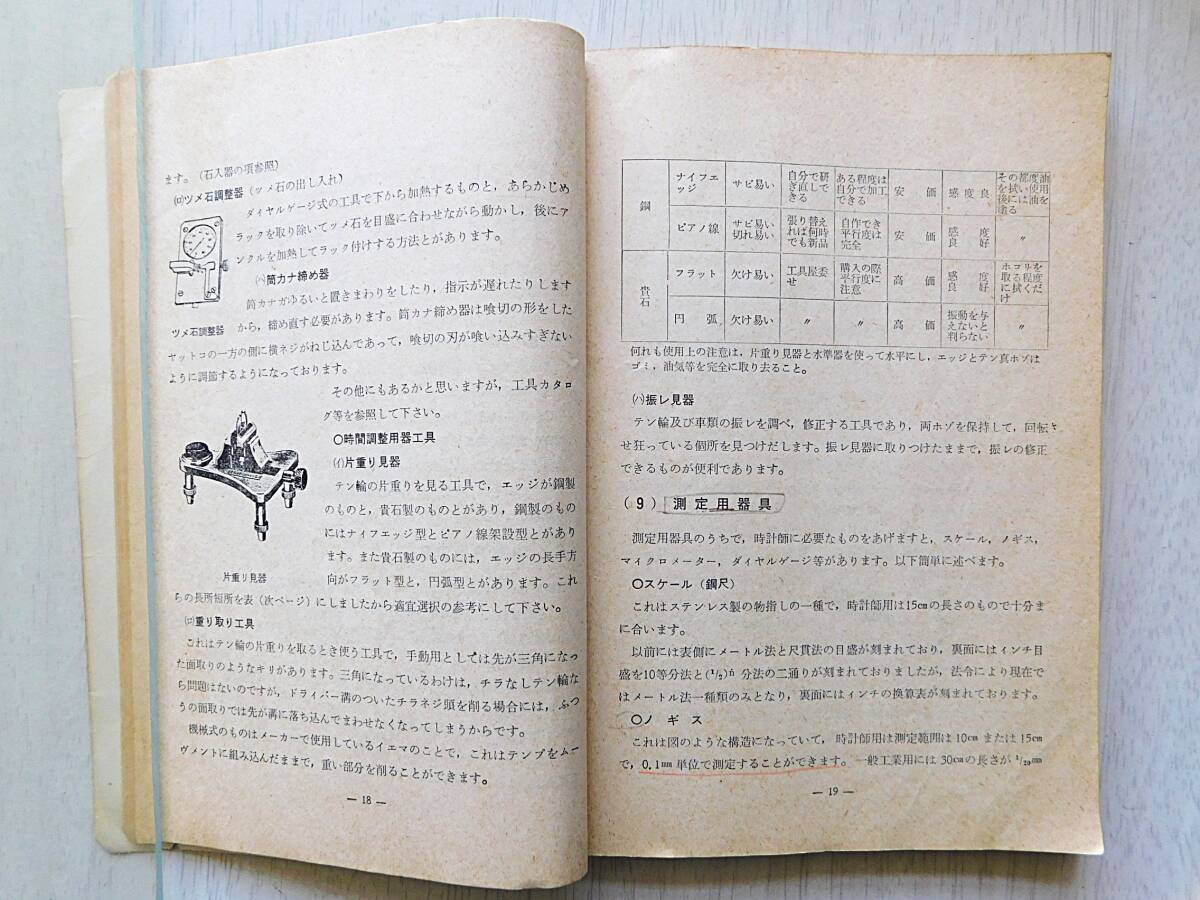 ます。(石入器の項参照)
(ロ)ツメ石調整器(ツメ石の出し入れ)
ダイヤルゲージ式の工具で下から加熱するものと，あらかじめ
ラックを取り除いてツメ石を目盛に合わせながら動かし，後にア
ンクルを加熱してラック付けする方法とがあります。
(ハ)筒カナ締め器
筒カナガゆるいと置きまわりをしたり，指示が遅れたりします
ツメ石調整器
から，締め直す必要があります。筒カナ締め器は喰切の形をした
ヤットコの一方の側に横ネジがねじ込んであって，喰切の刃が喰い込みすぎない
ように調節するようになっております。
その他にもあるかと思いますが，工具カタロ
グ等を参照して下さい。
〇時間調整用器工具
(イ)片重り見器
テン輪の片重りを見る工具で，エッジが鋼製
のものと，貴石製のものとがあり，鋼製のもの
にはナイフエッジ型とピアノ線架設型とがあり
ます。また貴石製のものには，エッジの長手方
片重り見器
向がフラット型と，円弧型とがあります。これ
らの長所短所を表(次ページ)にしましたから適宜選択の参考にして下さい。
(ロ)重り取り工具
これはテン輪の片重りを取るとき使う工具で，手動用としては先が三角になっ
た面取りのようなキリがあります。三角になっているわけは，チラなしテン輪な
ら問題はないのですが，ドライバー溝のついたチラネジ頭を削る場合には，ふつ
うの面取りでは先が溝に落ち込んでまわせなくなってしまうからです。
機械式のものはメーカーで使用しているイエマのことで，これはテンプをムー
ヴメントに組み込んだままで，重い部分を削ることができます。
— 18 —
鋼 ナイフエッジ サビ易い 自分で研ぎ直しできる ある程度は自分で加工できる 安価 感度良 その都度油を拭い使用後には油を塗る
ピアノ線 サビ易い切れ易い 張り替えれば何時でも新品 自作でき平行度は完全 安価 感度良好 〃
貴石 フラット 欠け易い 工具屋委せ 購入の際平行度に注意 高価 感度良好 ホコリを取る程度に拭くだけ
円弧 欠け易い 〃 〃 高価 振動を与えないと判らない 〃
何れも使用上の注意は，片重り見器と水準器を使って水平にし，エッジとテン真ホゾは
ゴミ，油気等を完全に取り去ること。
(ハ)振レ見器
テン輪及び車類の振レを調べ，修正する工具であり，両ホゾを保持して，回転さ
せ狂っている個所を見つけだします。振レ見器に取りつけたままで，振レの修正
できるものが便利であります。
(9) 測定用器具
測定用器具のうちで，時計師に必要なものをあげますと，スケール，ノギス，
マイクロメーター，ダイヤルゲージ等があります。以下簡単に述べます。
〇スケール(鋼尺)
これはステンレス製の物指しの一種で，時計師用は15cmの長さのもので十分ま
に合います。
以前には表側にメートル法と尺貫法の目盛が刻まれており，裏面にはインチ目
盛を10等分法と(1/2)ⁿ 分法の二通りが刻まれておりましたが，法令により現在で
はメートル法一種類のみとなり，裏面にはインチの換算表が刻まれております。
〇ノギス
これは図のような構造になっていて，時計師用は測定範囲は10cmまたは15cm
で，0.1mm単位で測定することができます。一般工業用には30cmの長さが1/20mm
— 19 —